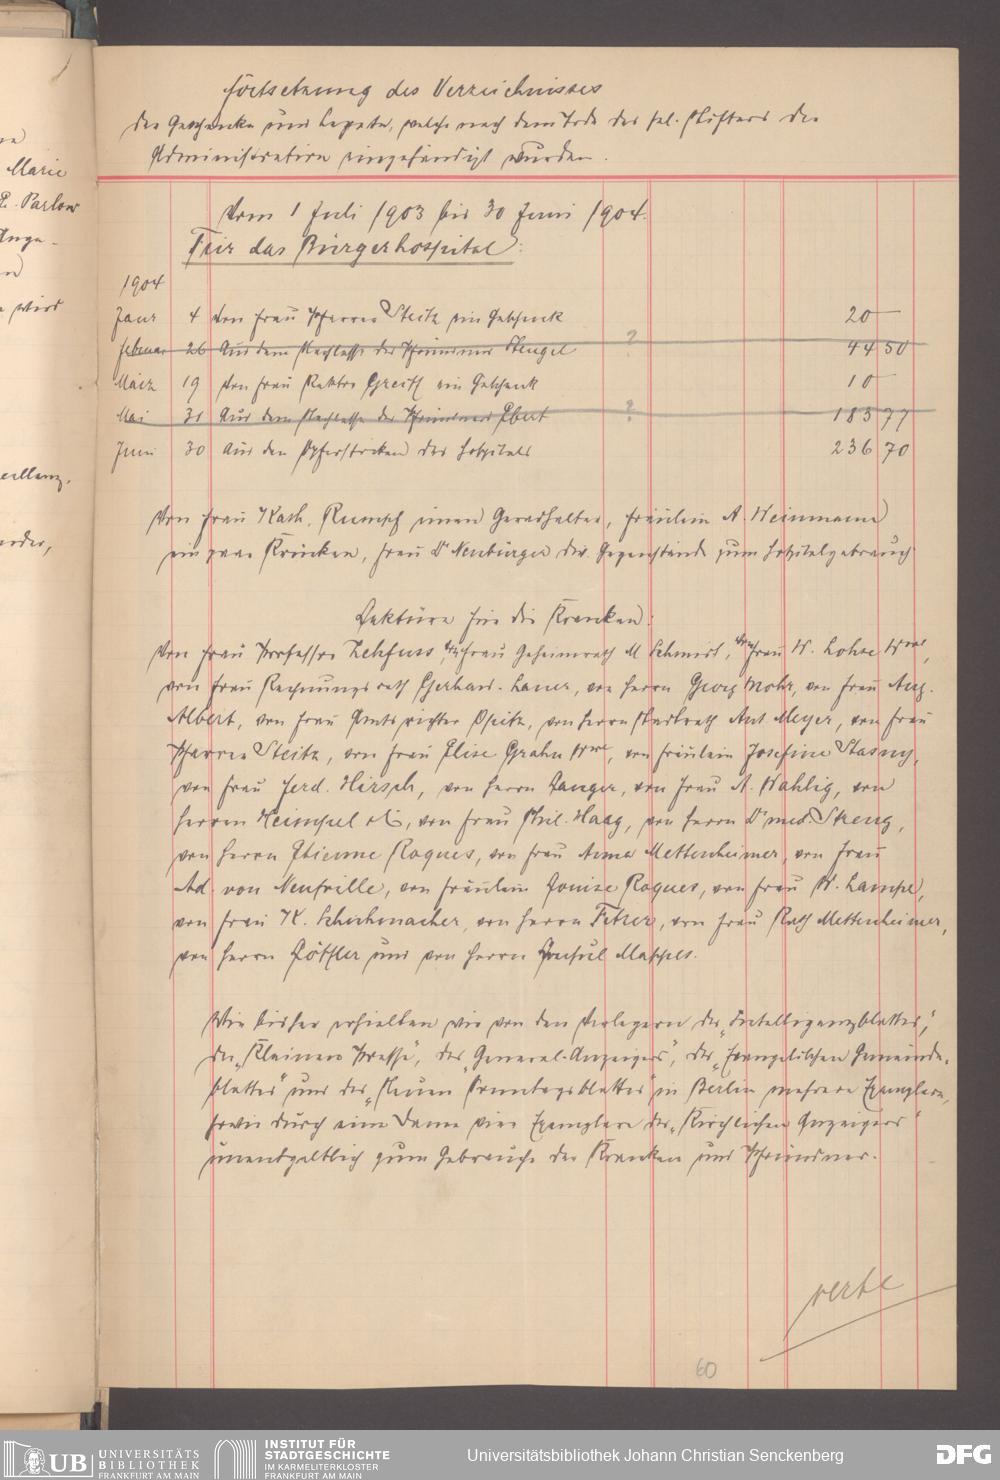 Marie
E. Parlow
wird
Fortsetzung des Verzeichnisses
der Geschenke und Legate, welche nach dem Tode des sel. Stifters der
Administration eingehändigt wurden.
Vom 1 Juli 1903 bis 30 Juni 1904.
Für das Bürgerhospital:
1904
Janr 4 Von Frau Pfarrer Steitz ein Geschenk 20 —
Februar 26 Aus dem Nachlasse des Pfründners Stengel ? 44 50
März 19 Von Frau Rektor Greiff ein Geschenk 10 —
Mai 31 Aus dem Nachlasse des Pfründners Ebert ? 183 77
Juni 30 Aus den Opferstöcken des Hospitals 236 70
Von Frau Kath. Rumpf einen Geradhalter, Fräulein A. Weinmann
ein paar Krücken, Frau Dr Neubürger div. Gegenstände zum Hospitalgebrauch
Lektüre für die Kranken:
Von Frau Professor Zehfuss, von Frau Geheimrath M Schmidt, von Frau W. Lohse Wwe,
von Frau Rechnungsrath Gerhard-Lauer, von Herrn Georg Mohr, von Frau Aug.
Albert, von Frau Amtsrichter Opitz, von Herrn Stadtrath Ant Meyer, von Frau
Pfarrer Steitz, von Frau Elise Grahn Wwe, von Fräulein Josefine Stasny,
von Frau Ferd. Hirsch, von Herrn Langer, von Frau A. Wahlig, von
Herren Heimpel & C, von Frau Phil. Haag, von Herrn Dr med. Streng,
von Herrn Etienne Roques, von Frau Anna Mettenheimer, von Frau
Ad. von Neufville, von Fräulein Louise Roques, von Frau W. Lampe,
von Frau K. Schuhmacher, von Herrn Fetzer, von Frau Rath Mettenheimer,
von Herrn Döffler und von Herrn Consul Mappes.
Wie bisher erhielten wir von den Verlegern des „Intelligenzblattes",
der „Kleinen Presse", des „General-Anzeigers", des „Evangelischen Gemeinde-
blattes" und des „Neuen Sonntagsblattes" in Berlin mehrere Exemplare,
sowie durch eine Dame vier Exemplare des „Kirchlichen Anzeigers"
unentgeltlich zum Gebrauche der Kranken und Pfründner.
verte
60
UB UNIVERSITÄTS
BIBLIOTHEK
FRANKFURT AM MAIN
INSTITUT FÜR
STADTGESCHICHTE
IM KARMELITERKLOSTER
FRANKFURT AM MAIN
Universitätsbibliothek Johann Christian Senckenberg
DFG